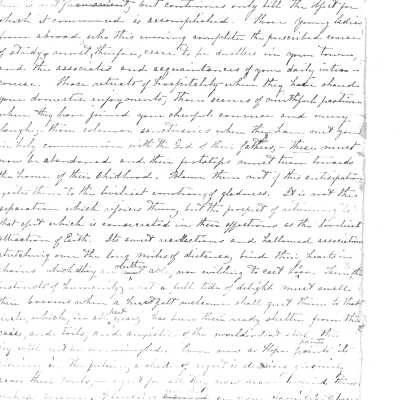 but continues only till the object for
which it commenced is accomplished. Those young ladies
from abroad who this evening complete the prescribed course
of study, must, therefore, cease to be dwellers in your town,
and the associates and acquaintances of your daily inter-
course. Those retreats of hospitality where they have shared
your domestic enjoyments, those scenes of mirthful pastime
where they have joined your cheerful converse and merry
laugh, those solemn sanctuaries when they have met you
in holy communion with the God of their fathers, these must
now be abandoned and their footsteps must turn towards
the home of their childhood. Blame them not if this anticipation
excites them to the liveliest emotions of gladness. It is not this
separation which rejoices them, but the prospect of returning to
that spot which is consecrated in their affections as the loveliest
attraction of Earth. Its sweet recollections and hallowed associations
stretching over the long miles of distance, bind their hearts in
chains which they are neither able, nor willing to cast from them
of humanity, if a full tide of delight must swell
their bosoms when a heart felt welcome shall greet them to that
circle, which, in has been their ready shelter from the
cares, and toils, and of the world. But this
joy will not be unmingled. Even now as Hope points its
in the future, a shade of regret is
over their souls, regret for all they now dear behind them
on your